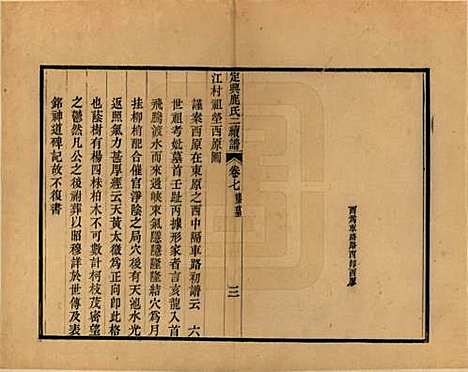 西為車路路西即西原
定興鹿氏二續譜
卷七 塋墓
三
江村祖塋西原圖
謹案西原在東原之西中隔車路初譜云 六
世祖考妣墓首壬趾丙據形家者言亥龍入首
飛騰渡水而來過峽束氣隱隱隆隆結穴為月
挂柳梢能催官淨陰之局穴後有天池水光
返照氣力甚厚經云天黃太微為正向即此格
也蔭樹有楊四株柏木不可數計柯枝茂密望
之鬱然凡公之祔葬以昭穆詳於世傳及表
銘神道碑記故不復書